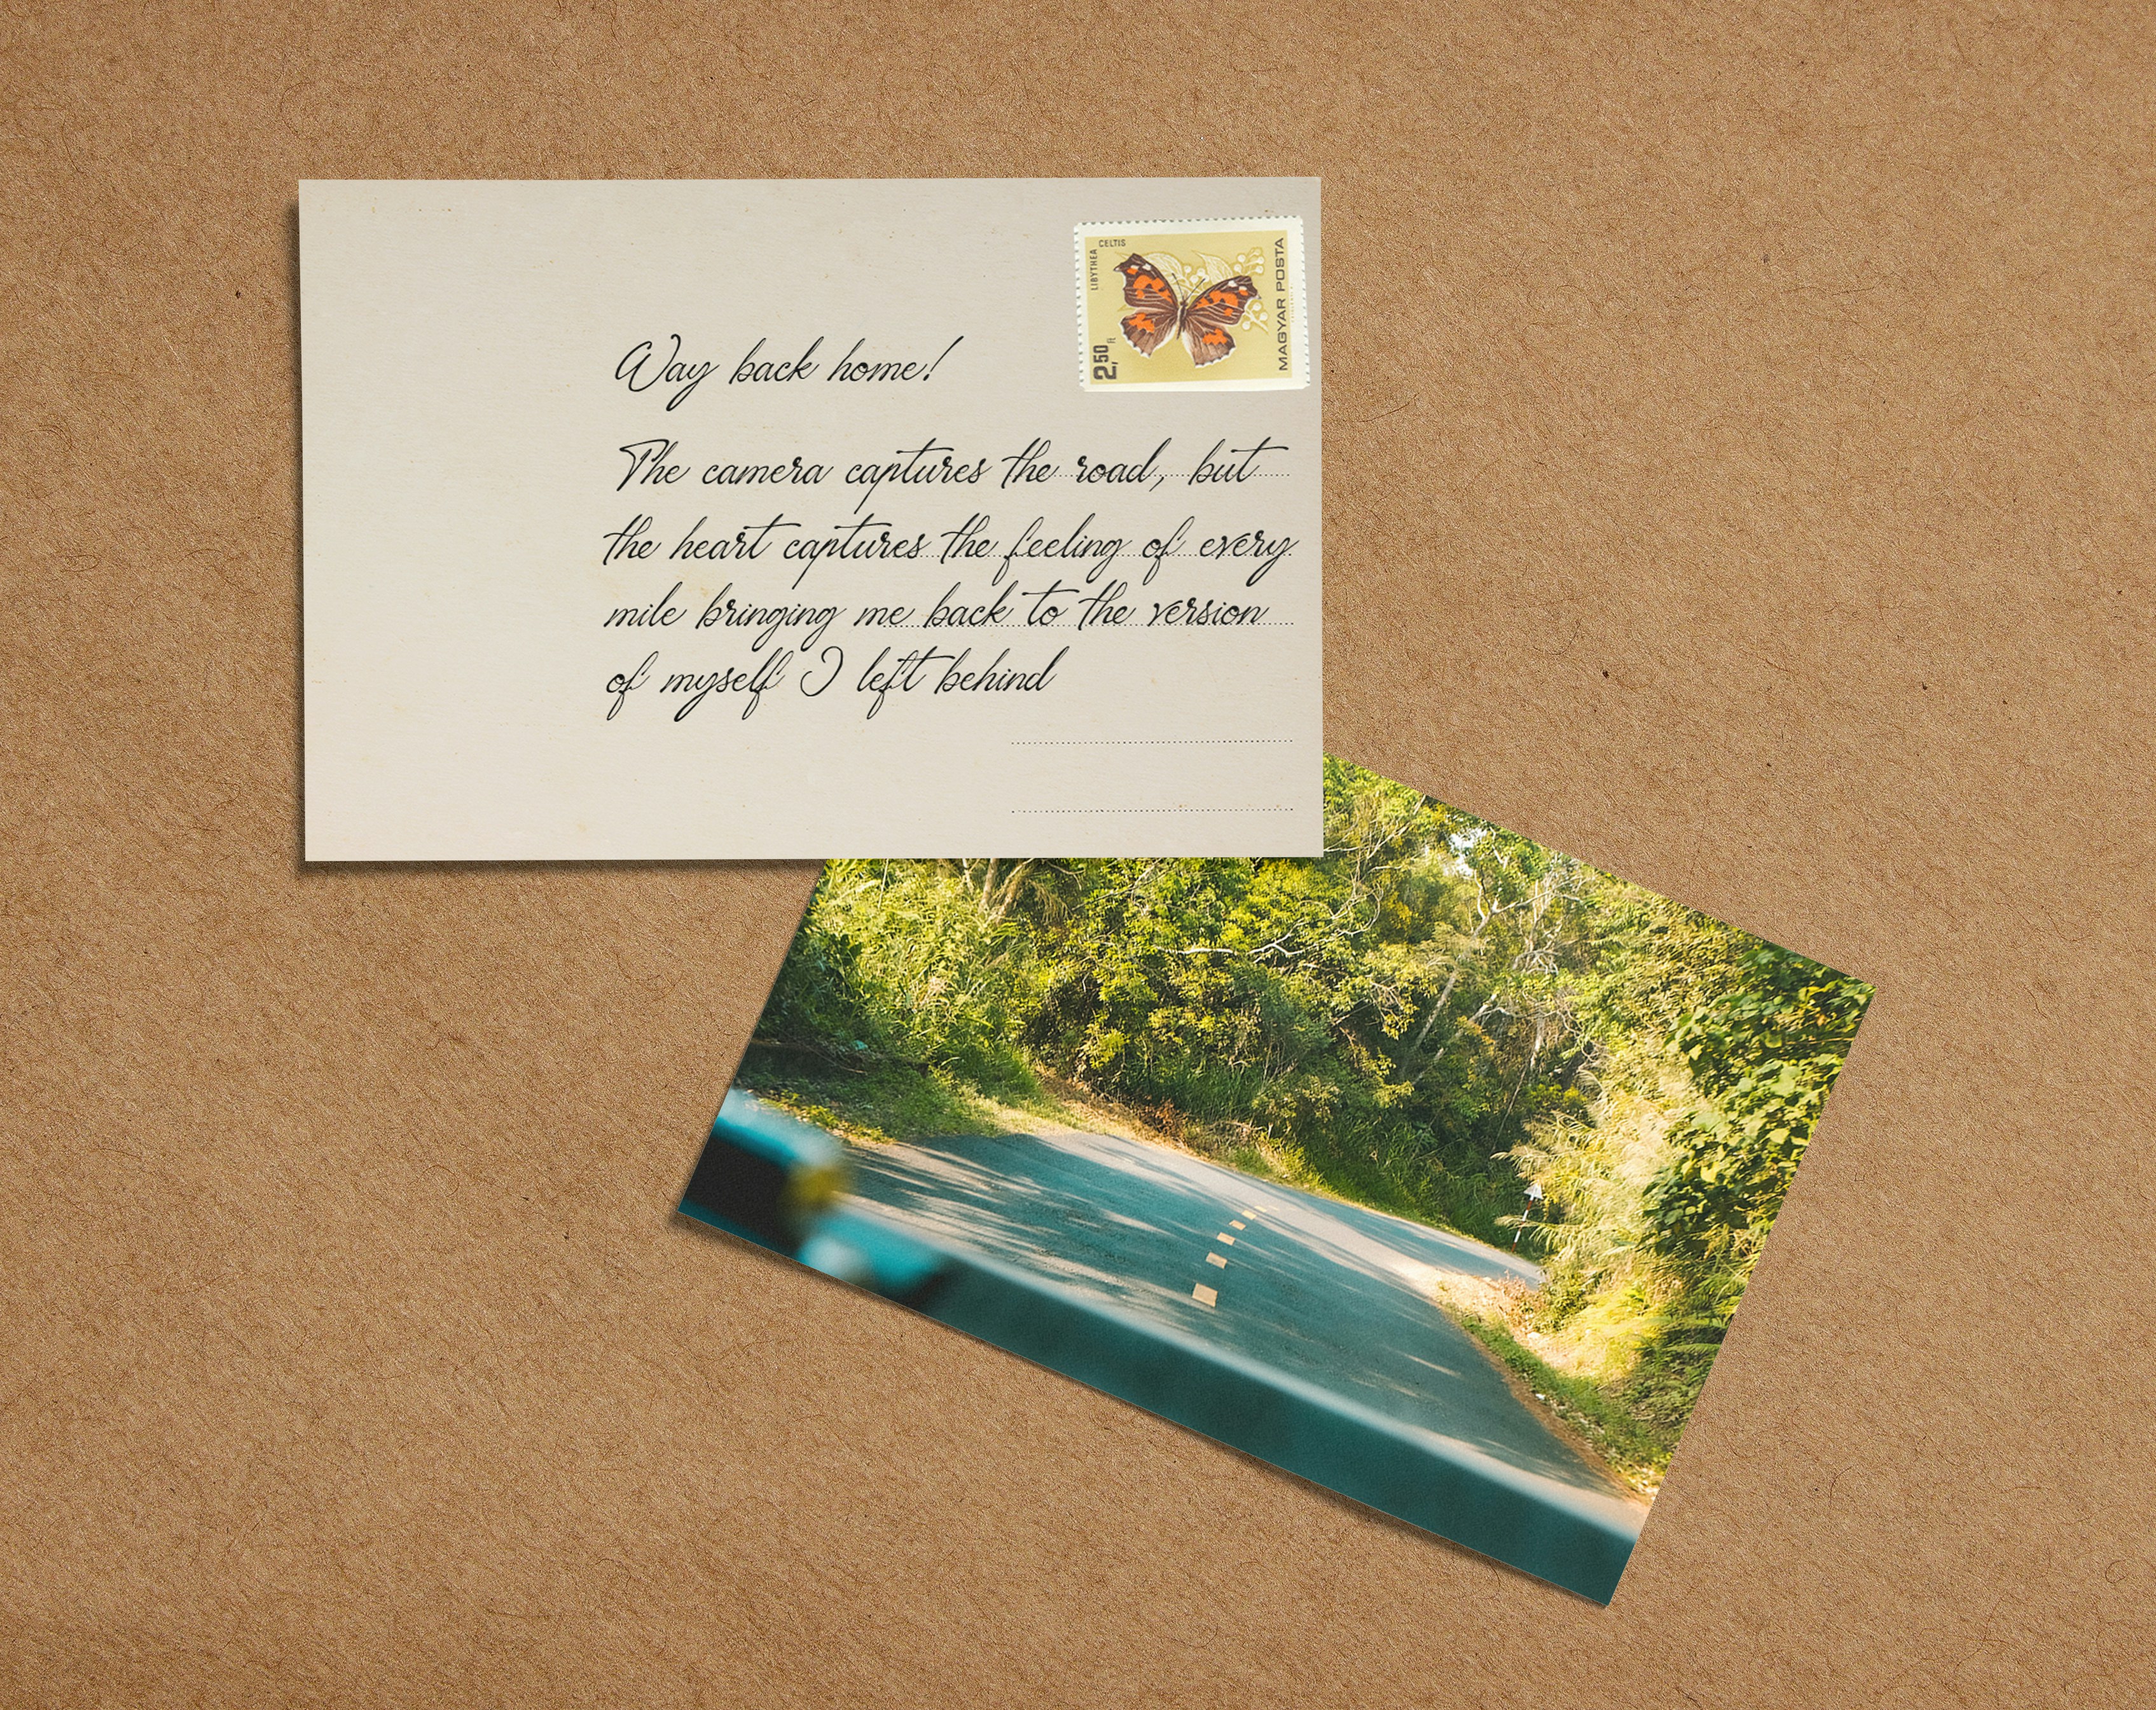 LIBYTHEA CELTIS
MAGYAR POSTA
2,50 Ft
Way back home!
The camera captures the road, but
the heart captures the feeling of every
mile bringing me back to the version
of myself I left behind